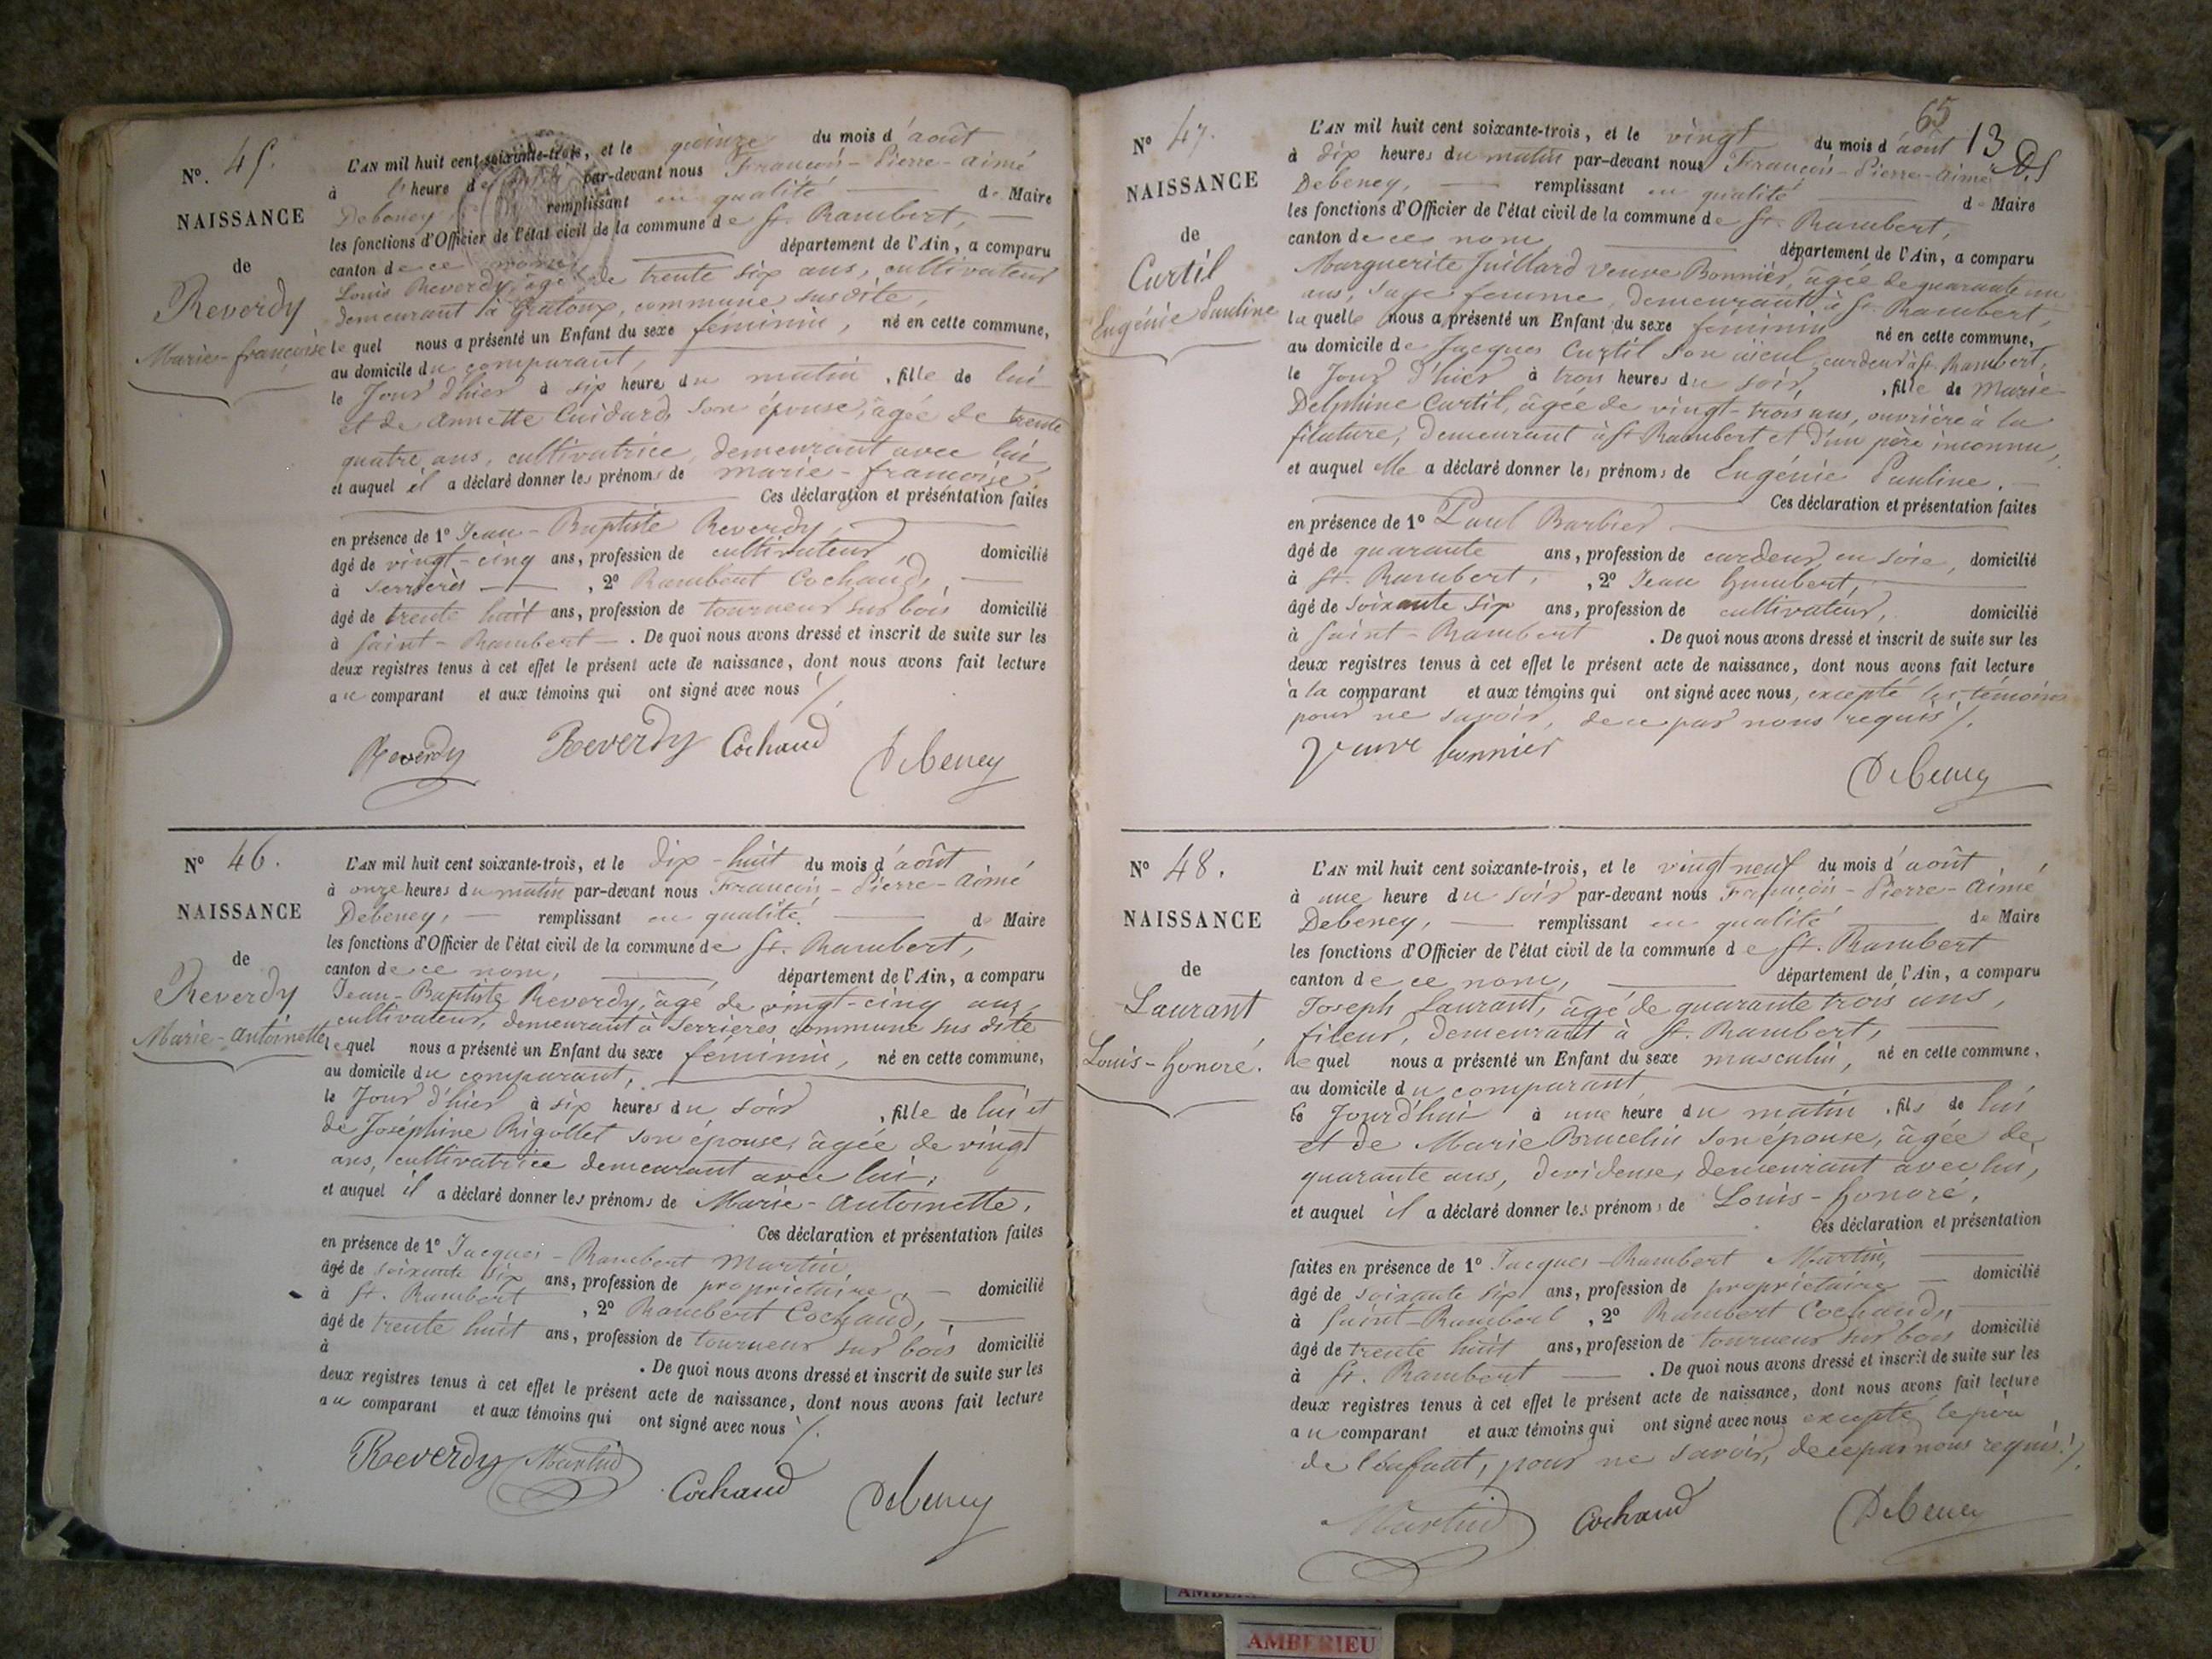 N°. 45.
NAISSANCE
de
Reverdy
Marie-françoise
L'AN mil huit cent soixante-trois, et le quinze du mois d'août
à heure de par-devant nous François-Pierre-Aimé
Debeney remplissant en qualité de Maire
les fonctions d'Officier de l'état civil de la commune de St. Rambert,
canton de ce nom, département de l'Ain, a comparu
Louis Reverdy, âgé de trente six ans, cultivateur
demeurant à Gratoux, commune susdite,
lequel nous a présenté un Enfant du sexe féminin, né en cette commune,
au domicile du comparant,
le Jour d'hier à six heure du matin, fille de lui
et de Annette Cuidard, son épouse, âgée de trente
quatre ans, cultivatrice, demeurant avec lui,
et auquel il a déclaré donner les prénoms de marie-françoise,
Ces déclaration et présentation faites
en présence de 1° Jean-Baptiste Reverdy,
âgé de vingt-cinq ans, profession de cultivateur, domicilié
à Serrières, 2° Rambert Cochaud,
âgé de trente huit ans, profession de tourneur sur bois domicilié
à Saint-Rambert. De quoi nous avons dressé et inscrit de suite sur les
deux registres tenus à cet effet le présent acte de naissance, dont nous avons fait lecture
au comparant et aux témoins qui ont signé avec nous /.
Reverdy Reverdy Cochaud Debeney
N° 46.
NAISSANCE
de
Reverdy
Marie-Antoinette
L'AN mil huit cent soixante-trois, et le dix-huit du mois d'août
à onze heures du matin par-devant nous François-Pierre-Aimé
Debeney, remplissant en qualité de Maire
les fonctions d'Officier de l'état civil de la commune de St. Rambert,
canton de ce nom, département de l'Ain, a comparu
Jean-Baptiste Reverdy, âgé de vingt-cinq ans,
cultivateur, demeurant à Serrières commune sus dite
lequel nous a présenté un Enfant du sexe féminin, né en cette commune,
au domicile du comparant,
le Jour d'hier à six heures du soir, fille de lui et
de Joséphine Rigollet son épouse, âgée de vingt
ans, cultivatrice demeurant avec lui,
et auquel il a déclaré donner les prénoms de Marie-Antoinette,
Ces déclaration et présentation faites
en présence de 1° Jacques-Rambert Martin
âgé de soixante six ans, profession de propriétaire, domicilié
à St. Rambert, 2° Rambert Cochaud,
âgé de trente huit ans, profession de tourneur sur bois domicilié
à . De quoi nous avons dressé et inscrit de suite sur les
deux registres tenus à cet effet le présent acte de naissance, dont nous avons fait lecture
au comparant et aux témoins qui ont signé avec nous /.
Reverdy Martin Cochaud Debeney
65
13
N° 47.
NAISSANCE
de
Curtil
Eugénie Pauline
L'AN mil huit cent soixante-trois, et le vingt du mois d'août
à dix heures du matin par-devant nous François-Pierre-Aimé
Debeney, remplissant en qualité de Maire
les fonctions d'Officier de l'état civil de la commune de St. Rambert,
canton de ce nom, département de l'Ain, a comparu
Marguerite Juillard Veuve Bonnier, âgée de quarante un
ans, sage femme, demeurant à St. Rambert,
laquelle nous a présenté un Enfant du sexe féminin né en cette commune,
au domicile de Jacques Curtil son aïeul, cardeur à St. Rambert,
le Jour d'hier à trois heures du soir, fille de Marie
Delphine Curtil, âgée de vingt-trois ans, ouvrière à la
filature, demeurant à St Rambert et d'un père inconnu,
et auquel elle a déclaré donner les prénoms de Eugénie Pauline.
Ces déclaration et présentation faites
en présence de 1° Paul Barbier
âgé de quarante ans, profession de cardeur en soie, domicilié
à St. Rambert, 2° Jean Humbert,
âgé de soixante six ans, profession de cultivateur, domicilié
à Saint-Rambert. De quoi nous avons dressé et inscrit de suite sur les
deux registres tenus à cet effet le présent acte de naissance, dont nous avons fait lecture
à la comparant et aux témoins qui ont signé avec nous, excepté les témoins
pour ne savoir, de ce par nous requis /.
Veuve bonnier Debeney
N° 48.
NAISSANCE
de
Laurant
Louis-honoré.
L'AN mil huit cent soixante-trois, et le vingt neuf du mois d'août
à une heure du soir par-devant nous François-Pierre-Aimé
Debeney, remplissant en qualité de Maire
les fonctions d'Officier de l'état civil de la commune de St. Rambert
canton de ce nom, département de l'Ain, a comparu
Joseph Laurant, âgé de quarante trois ans,
fileur, demeurant à St. Rambert,
lequel nous a présenté un Enfant du sexe masculin, né en cette commune,
au domicile du comparant
le Jourd'hui à une heure du matin, fils de lui
et de Marie Brucelin son épouse, âgée de
quarante ans, devideuse, demeurant avec lui,
et auquel il a déclaré donner les prénoms de Louis-honoré,
Ces déclaration et présentation
faites en présence de 1° Jacques-Rambert Martin,
âgé de soixante six ans, profession de propriétaire domicilié
à Saint-Rambert, 2° Rambert Cochaud,
âgé de trente huit ans, profession de tourneur sur bois domicilié
à St. Rambert. De quoi nous avons dressé et inscrit de suite sur les
deux registres tenus à cet effet le présent acte de naissance, dont nous avons fait lecture
au comparant et aux témoins qui ont signé avec nous excepté le père
de l'enfant, pour ne savoir, de ce par nous requis /.
Martin Cochaud Debeney
AMBERIEU